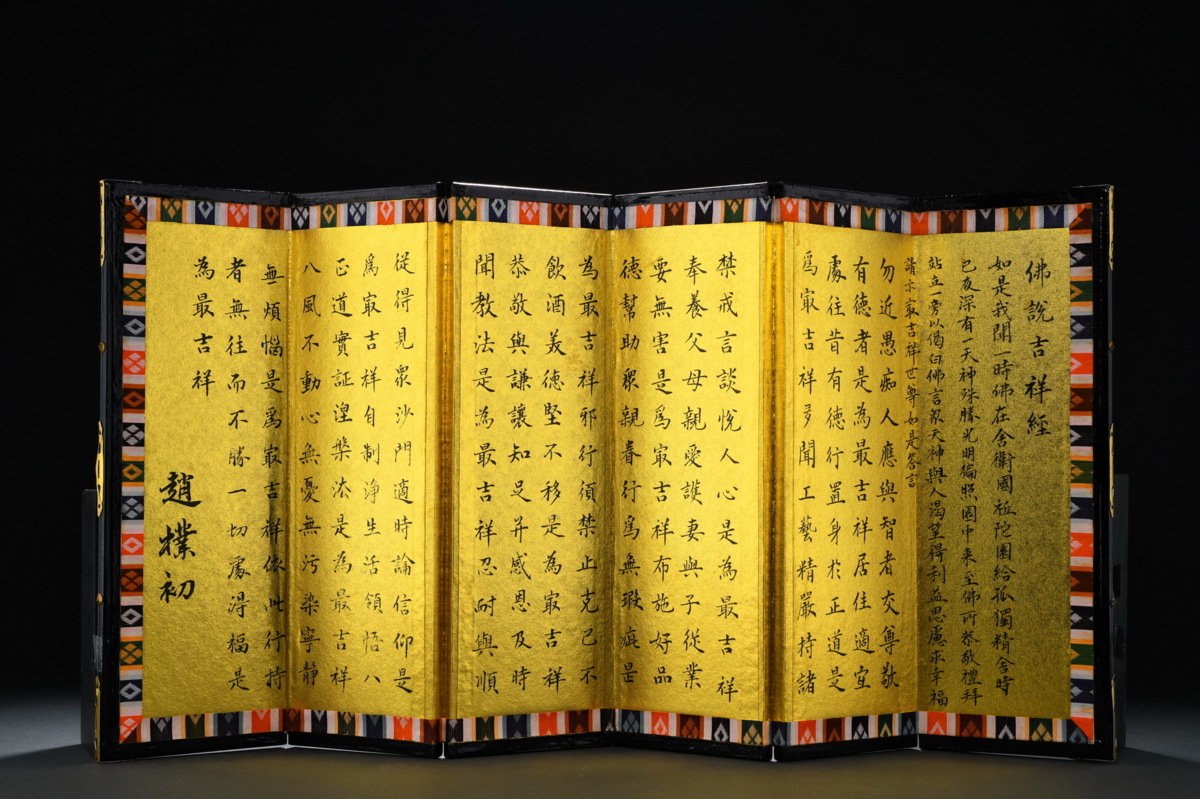 佛說吉祥經
如是我聞一時佛在舍衛國祇陀園給孤獨精舍時
已夜深有一天神殊勝光明徧照園中来至佛所恭敬禮拜
站立一旁以偈白佛言眾天神與人渴望得利益思慮求幸福
請示㝡吉祥世尊如是答言
勿近愚痴人應與智者交尊敬
有德者是為最吉祥居住適宜
處往昔有德行置身於正道是
爲㝡吉祥多聞工藝精嚴持諸
禁戒言談悅人心是為最吉祥
奉養父母親愛護妻與子從業
要無害是爲㝡吉祥布施好品
德幫助眾親眷行爲無瑕疵是
為最吉祥邪行須禁止克己不
飲酒美德堅不移是為㝡吉祥
恭敬與謙讓知足并感恩及時
聞教法是為最吉祥忍耐與順
從得見眾沙門適時論信仰是
爲㝡吉祥自制淨生活領悟八
正道實証涅槃法是為最吉祥
八風不動心無憂無污染寧静
無煩惱是爲㝡吉祥依此行持
者無往而不勝一切處得福是
為最吉祥
趙樸初